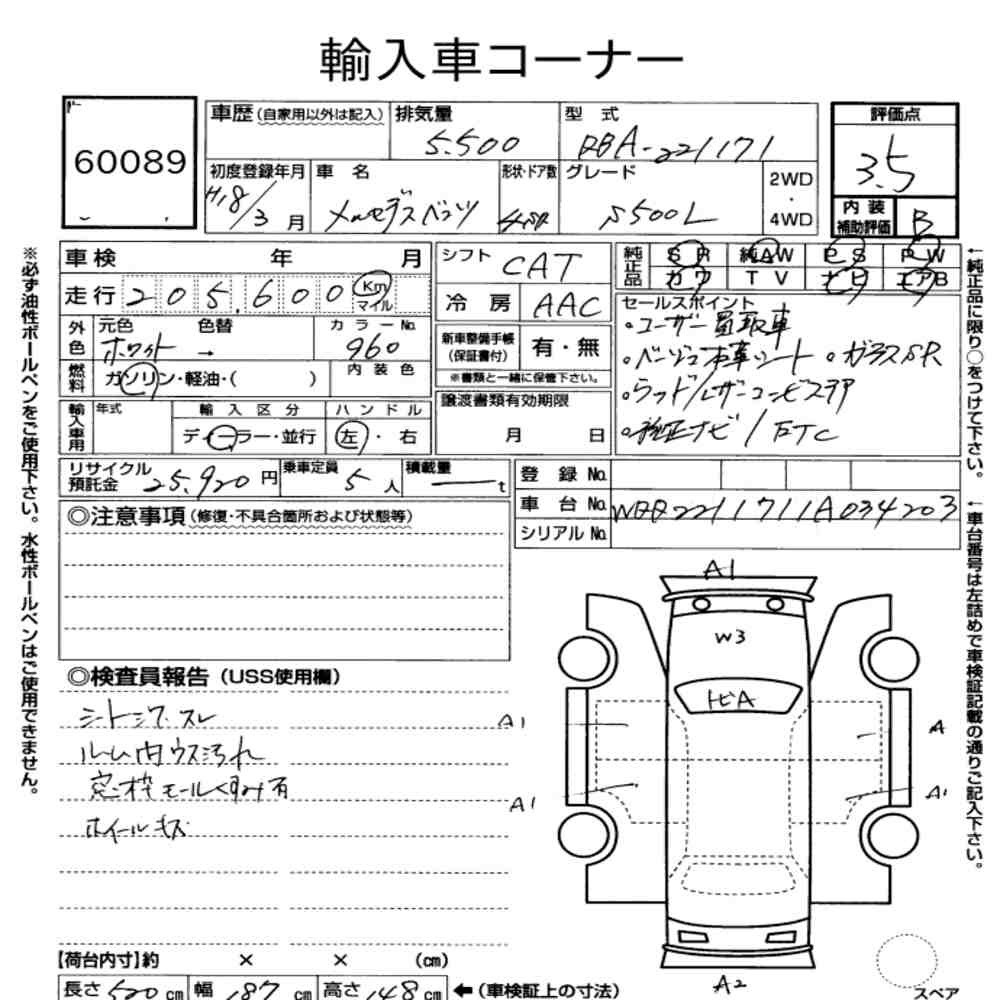 輸入車コーナー
60089
車歴 (自家用以外は記入)
排気量
5.500
型 式
RBA-221171
評価点
3.5
初度登録年月
H18/3 月
車 名
メルセデスベンツ
形状・ドア数
4SD
グレード
S500L
2WD
・
4WD
内装
補助評価
B
車検 年 月
シフト
CAT
純正品
SR 純AW PS PW
カワ TV ナビ エアB
走行 205,600 Km
マイル
冷房
AAC
セールスポイント
・ユーザー買取車
・ベージュ本革シート ・ガラスSR
・ウッド/レザーコンビステア
・純正ナビ/ETC
外色
元色 色替
ホワイト →
カラーNo.
960
新車整備手帳
(保証書付)
有・無
※書類と一緒に保管下さい。
燃料
ガソリン・軽油・( )
内装色
譲渡書類有効期限
月 日
輸入車用
年式
輸入区分
ディーラー・並行
ハンドル
左・右
リサイクル
預託金
25,920 円
乗車定員
5 人
積載量
― t
登録No.
車台No.
WDD2211711A034203
シリアルNo.
◎注意事項 (修復・不具合箇所および状態等)
◎検査員報告 (USS使用欄)
シートシワ・スレ
ルーム内ウス汚れ
窓枠モールくすみ有
ホイールキズ
A1
W3
トビA
A1
A
A1
A1
A2
スペア
【荷台内寸】約 × × (cm)
長さ 520 cm
幅 187 cm
高さ 148 cm
←(車検証上の寸法)
※必ず油性ボールペンをご使用下さい。水性ボールペンはご使用できません。
←純正品に限り○をつけて下さい。
←車台番号は左詰めで車検証記載の通りご記入下さい。